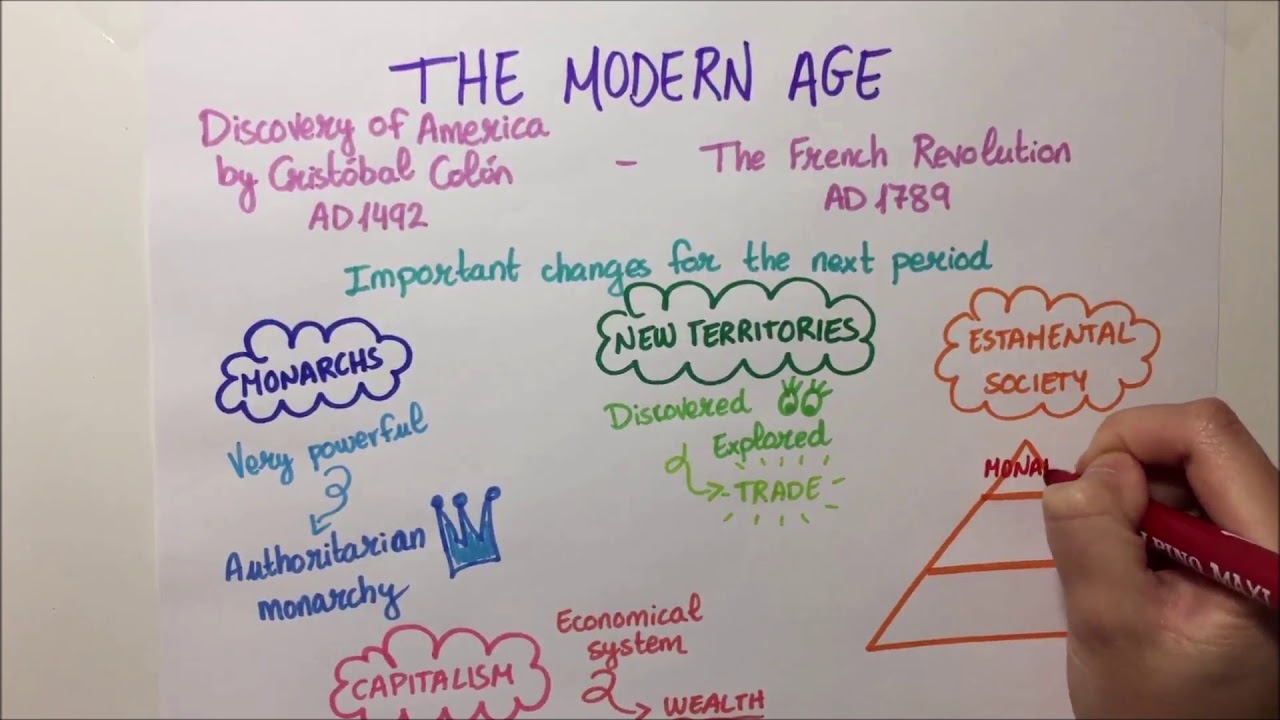 THE MODERN AGE
Discovery of America
by Cristóbal Colón
AD 1492
-
The French Revolution
AD 1789
Important changes for the next period
MONARCHS
Very powerful
Authoritarian
monarchy
NEW TERRITORIES
Discovered
Explored
TRADE
ESTAMENTAL
SOCIETY
MONA
CAPITALISM
Economical
system
WEALTH